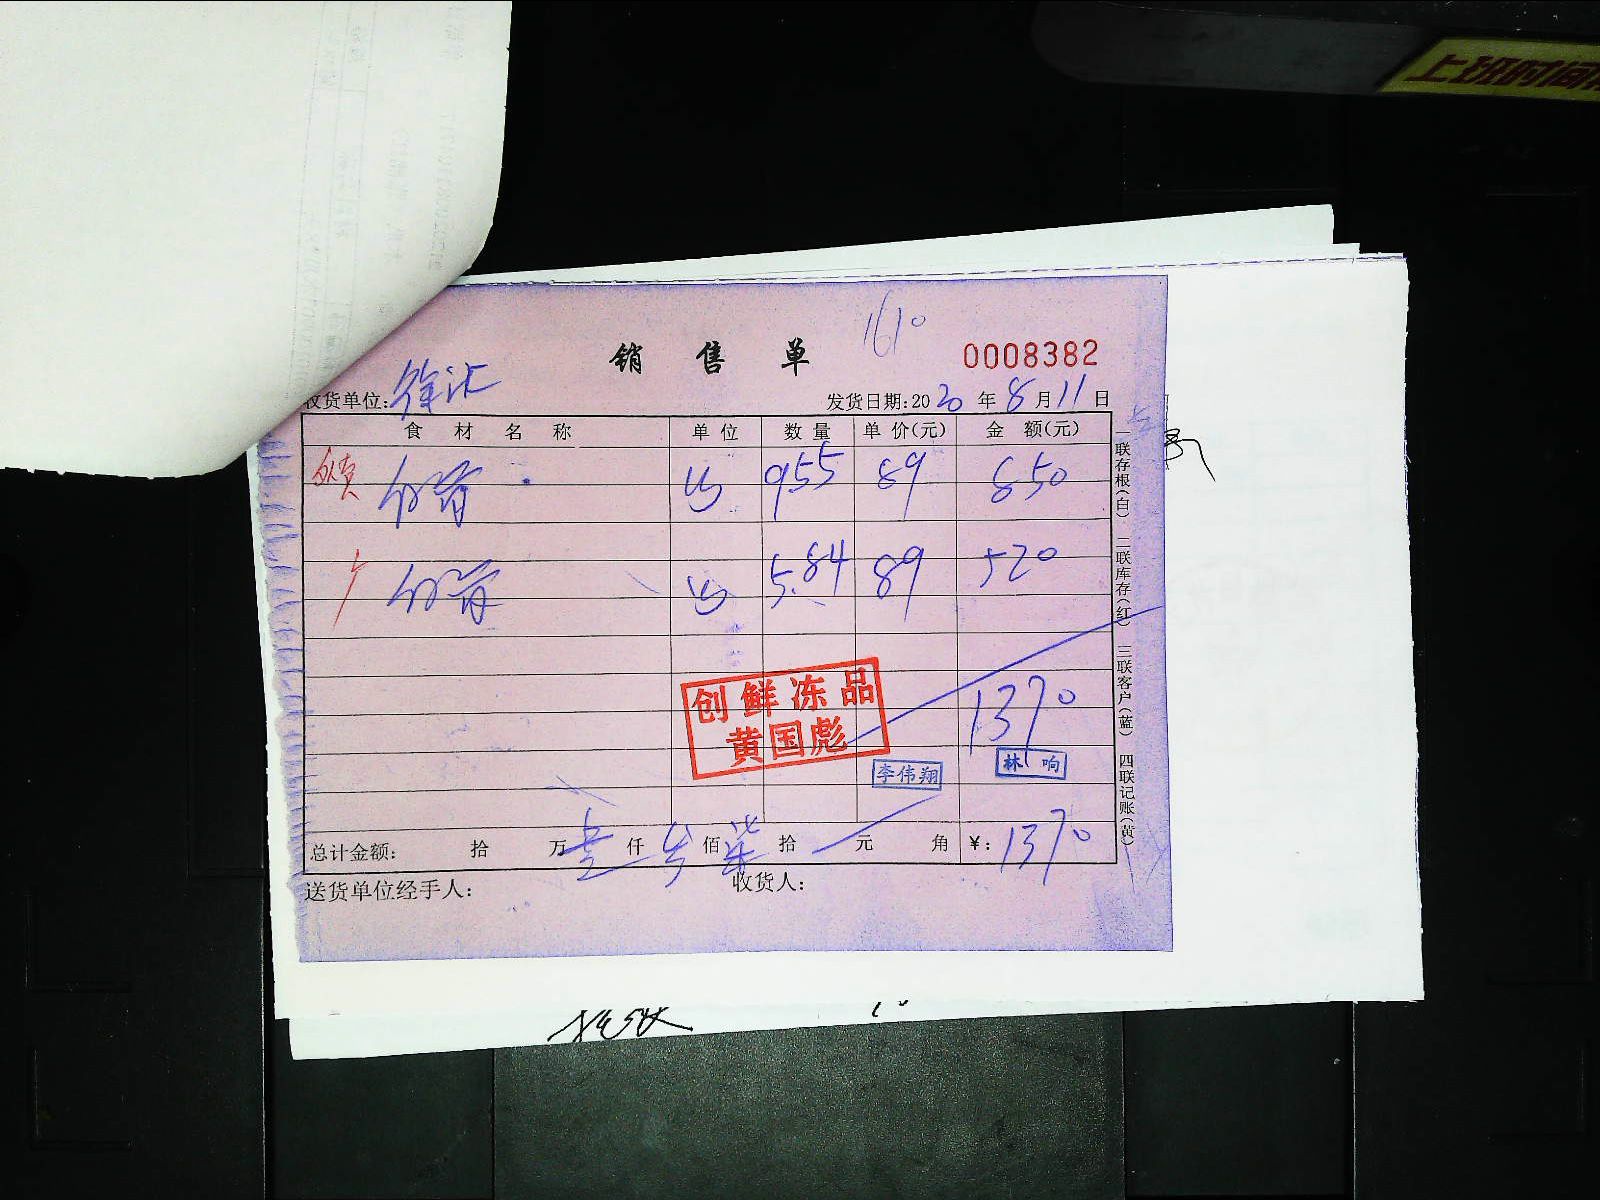 上班时间
1610
销售单 0008382
收货单位:徐汇 发货日期:2020年8月11日
食材名称 单位 数量 单价(元) 金额(元)
955 89 850
5.84 89 520
1370
创鲜冻品
黄国彪
李伟翔 林响
总计金额: 拾 万 壹仟 叁佰 柒拾 元 角 ¥:1370
送货单位经手人: 收货人:
一联存根(白) 二联库存(红) 三联客户(蓝) 四联记账(黄)